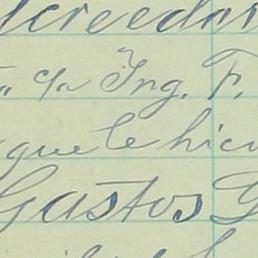 Acreedor
c/u Ing. F.
que le hici
Gastos G